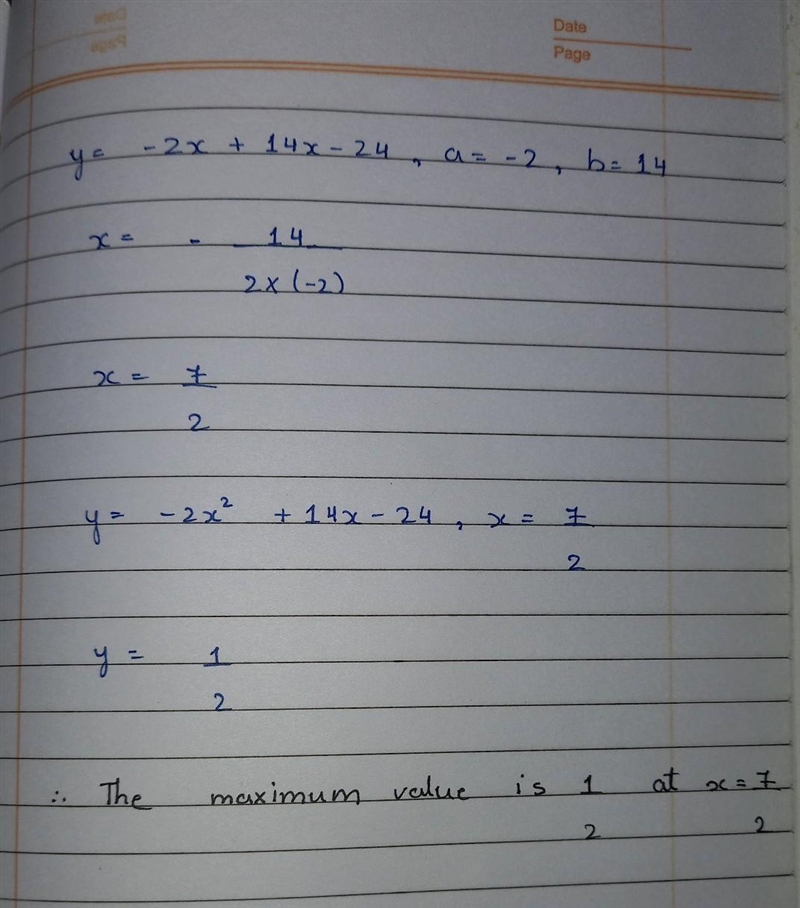 Date
Page
y = -2x + 14x - 24 , a = -2 , b = 14
x = - 14
2 x (-2)
x = 7
2
y = -2x² + 14x - 24 , x = 7
2
y = 1
2
∴ The maximum value is 1 at x = 7
2 2